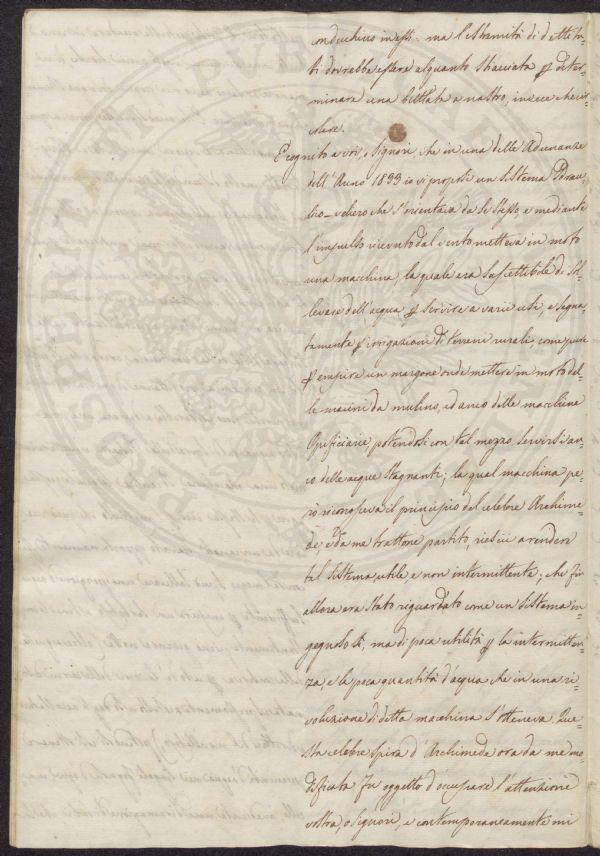 conduchino in essi. ma l'estremità di dette tu-
bi dovrebbe essere alquanto stiacciata p deter-
minare una bittata a nastro, invece che cir-
colare.
È cognito a voi, o Signori, che in una delle Adunanze
dell'Anno 1833 io vi proposi un Sistema Idrau-
lico-veliero che s'orientava da se stesso, e mediante
l'impulso ricevuto dal vento metteva in moto
una macchina, la quale era suscettibile di sol-
levare dell'acqua, p servire a varii usi, e segna-
tamente p irrigazioni di terreni rurali, come pure
p empire un margone onde mettere in moto del-
le macini da mulino, ed anco delle macchine
Opificiarie, potendosi con tal mezzo servirsi an-
co delle acque stagnanti; la qual macchina pe-
rò riconosceva il principio del celebre Archime-
de, e da me trattone partito, riescii a rendere
tal sistema utile, e non intermittente; che fin
allora era stato riguardato come un sistema in-
gegnoso sì, ma di poca utilità p la intermitten-
za, e la poca quantità d'acqua che in una ri-
voluzione di detta macchina s'otteneva. Que-
sta celebre spira d'Archimede ora da me mo-
dificata fu oggetto d'occupare l'attenzione
vostra, o Signori, e contemporaneamente mi
PROSPERITATI PUB